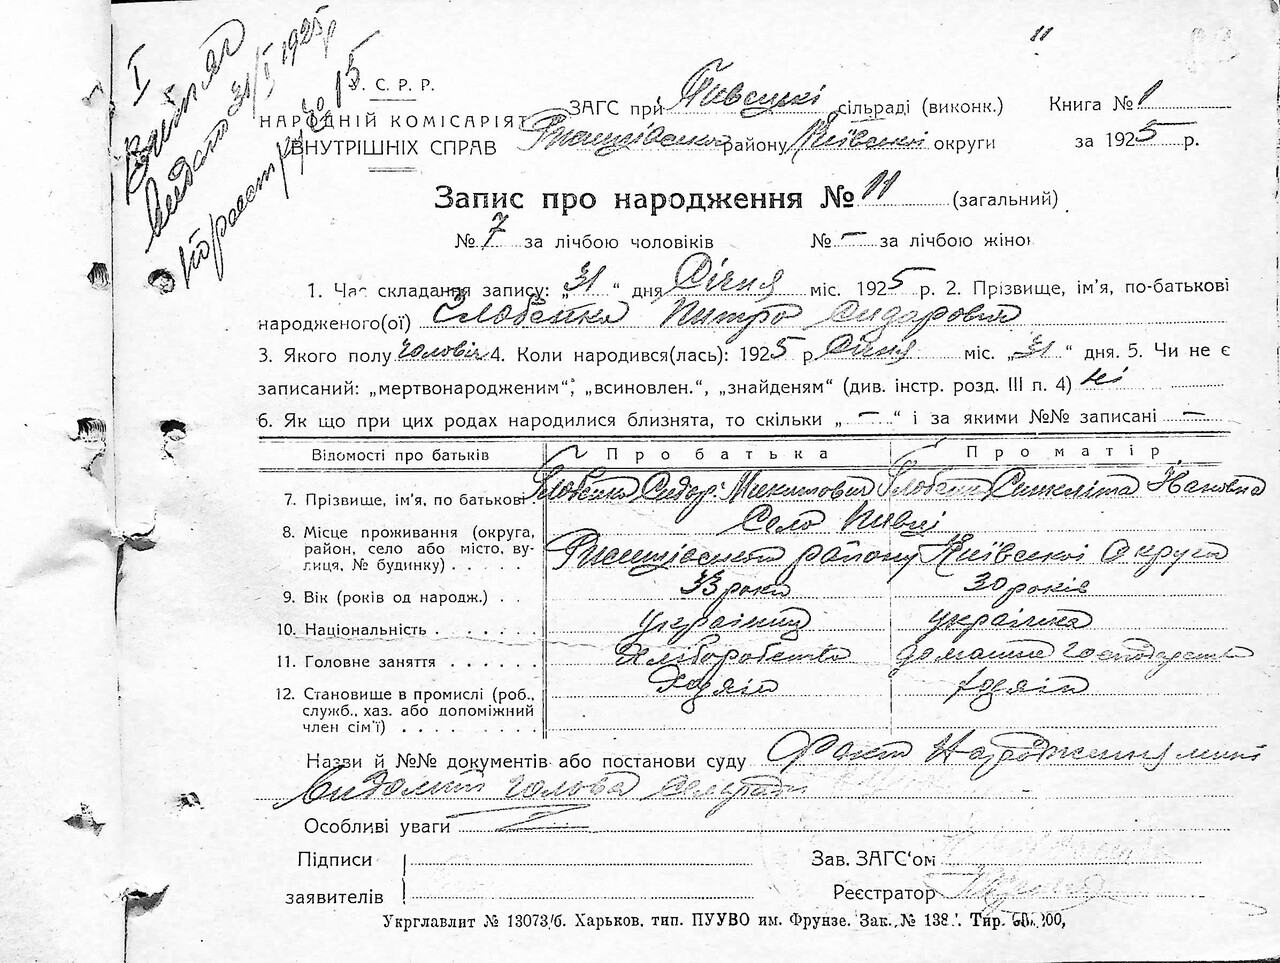 11
І
Витяг
видано 31/І 1925 р
по реєстру № 15
У. С. Р. Р.
НАРОДНІЙ КОМІСАРІЯТ
ВНУТРІШНІХ СПРАВ
ЗАГС при Пивецькі сільраді (виконк.)
Ржищівського району Київської округи
Книга № 1
за 1925 р.
Запис про народження № 11 (загальний)
№ 7 за лічбою чоловіків № — за лічбою жінок
1. Час складання запису: „31“ дня Січня міс. 1925 р. 2. Прізвище, ім'я, по-батькові
народженого(ої) Петро Сидорович
3. Якого полу чоловіч 4. Коли народився(лась): 1925 р. Січня міс. „31“ дня. 5. Чи не є
записаний: „мертвонародженим“, „всиновлен.“, „знайденям“ (див. інстр. розд. III п. 4) ні
6. Як що при цих родах народилися близнята, то скільки „—“ і за якими №№ записані —
Відомості про батьків Про батька Про матір
7. Прізвище, ім'я, по батькові Сидор Микитович Івановна
8. Місце проживання (округа, район, село або місто, вулиця, № будинку) Село Пивці
Ржищівського району Київської Округи
9. Вік (років од народж.) 33 роки 30 років
10. Національність українець українка
11. Головне заняття Хліборобство домашнє господарство
12. Становище в промислі (роб., служб., хаз. або допоміжний член сім'ї) Хазяїн
Назви й №№ документів або постанови суду Факт Народження мині
видомий голова сельради
Особливі уваги Z
Підписи
заявителів
Зав. ЗАГС'ом
Реєстратор
Укрглавлит № 13073/б. Харьков. тип. ПУУВО им. Фрунзе. Зак. № 138